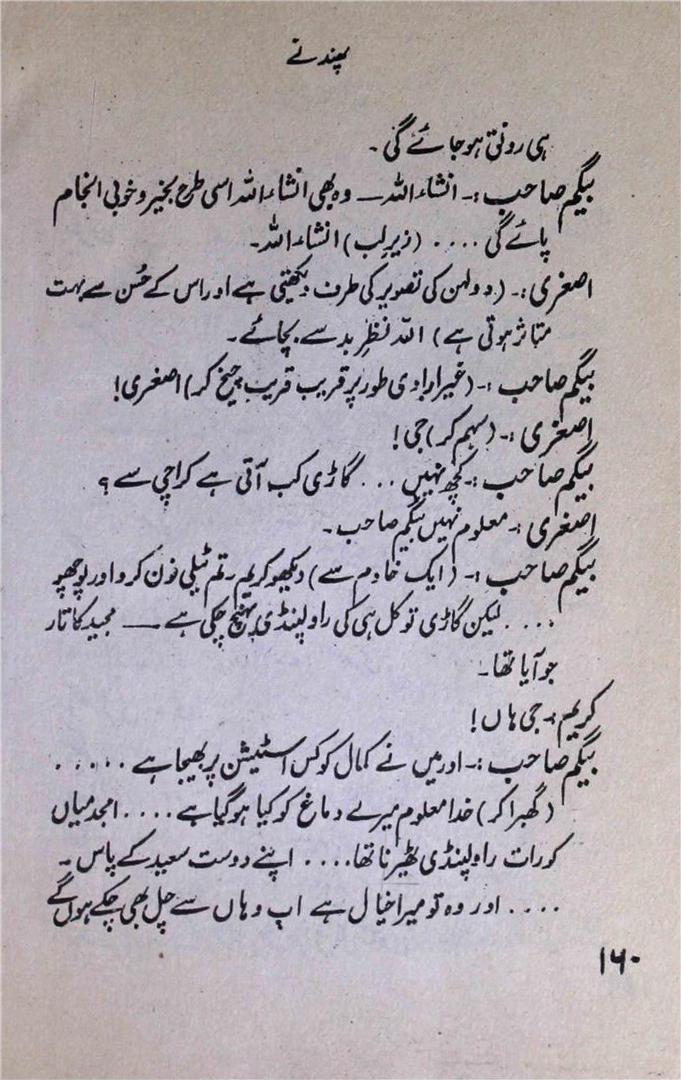 پھندنے
ہی رونق ہوجائے گی۔
بیگم صاحب :۔ انشاءاللہ — وہ بھی انشاءاللہ اسی طرح بخیر و خوبی انجام
پائے گی .... (زیرلب) انشاءاللہ۔
اصغری :۔ (دولہن کی تصویر کی طرف دیکھتی ہے اور اس کے حُسن سے بہت
متاثر ہوتی ہے) اللہ نظرِ بد سے بچائے۔
بیگم صاحب :۔ (غیر ارادی طور پر قریب قریب چیخ کر) اصغری!
اصغری :۔ (سہم کر) جی!
بیگم صاحب :۔ کچھ نہیں ... گاڑی کب آتی ہے کراچی سے ؟
اصغری :۔ معلوم نہیں بیگم صاحب۔
بیگم صاحب :۔ (ایک خادم سے) دیکھو کریم۔ تم ٹیلی فون کرو اور پوچھو
.... لیکن گاڑی تو کل ہی کی راولپنڈی پہنچ چکی ہے — مجید کا تار
جو آیا تھا۔
کریم :۔ جی ہاں!
بیگم صاحب :۔ اور میں نے کمال کو کس اسٹیشن پر بھیجا ہے .....
(گھبرا کر) خدا معلوم میرے دماغ کو کیا ہوگیا ہے .... امجد میاں
کو رات راولپنڈی ٹھیرنا تھا.... اپنے دوست سعید کے پاس۔
.... اور وہ تو میرا خیال ہے اب وہاں سے چل بھی چکے ہوں گے
۱۶۰